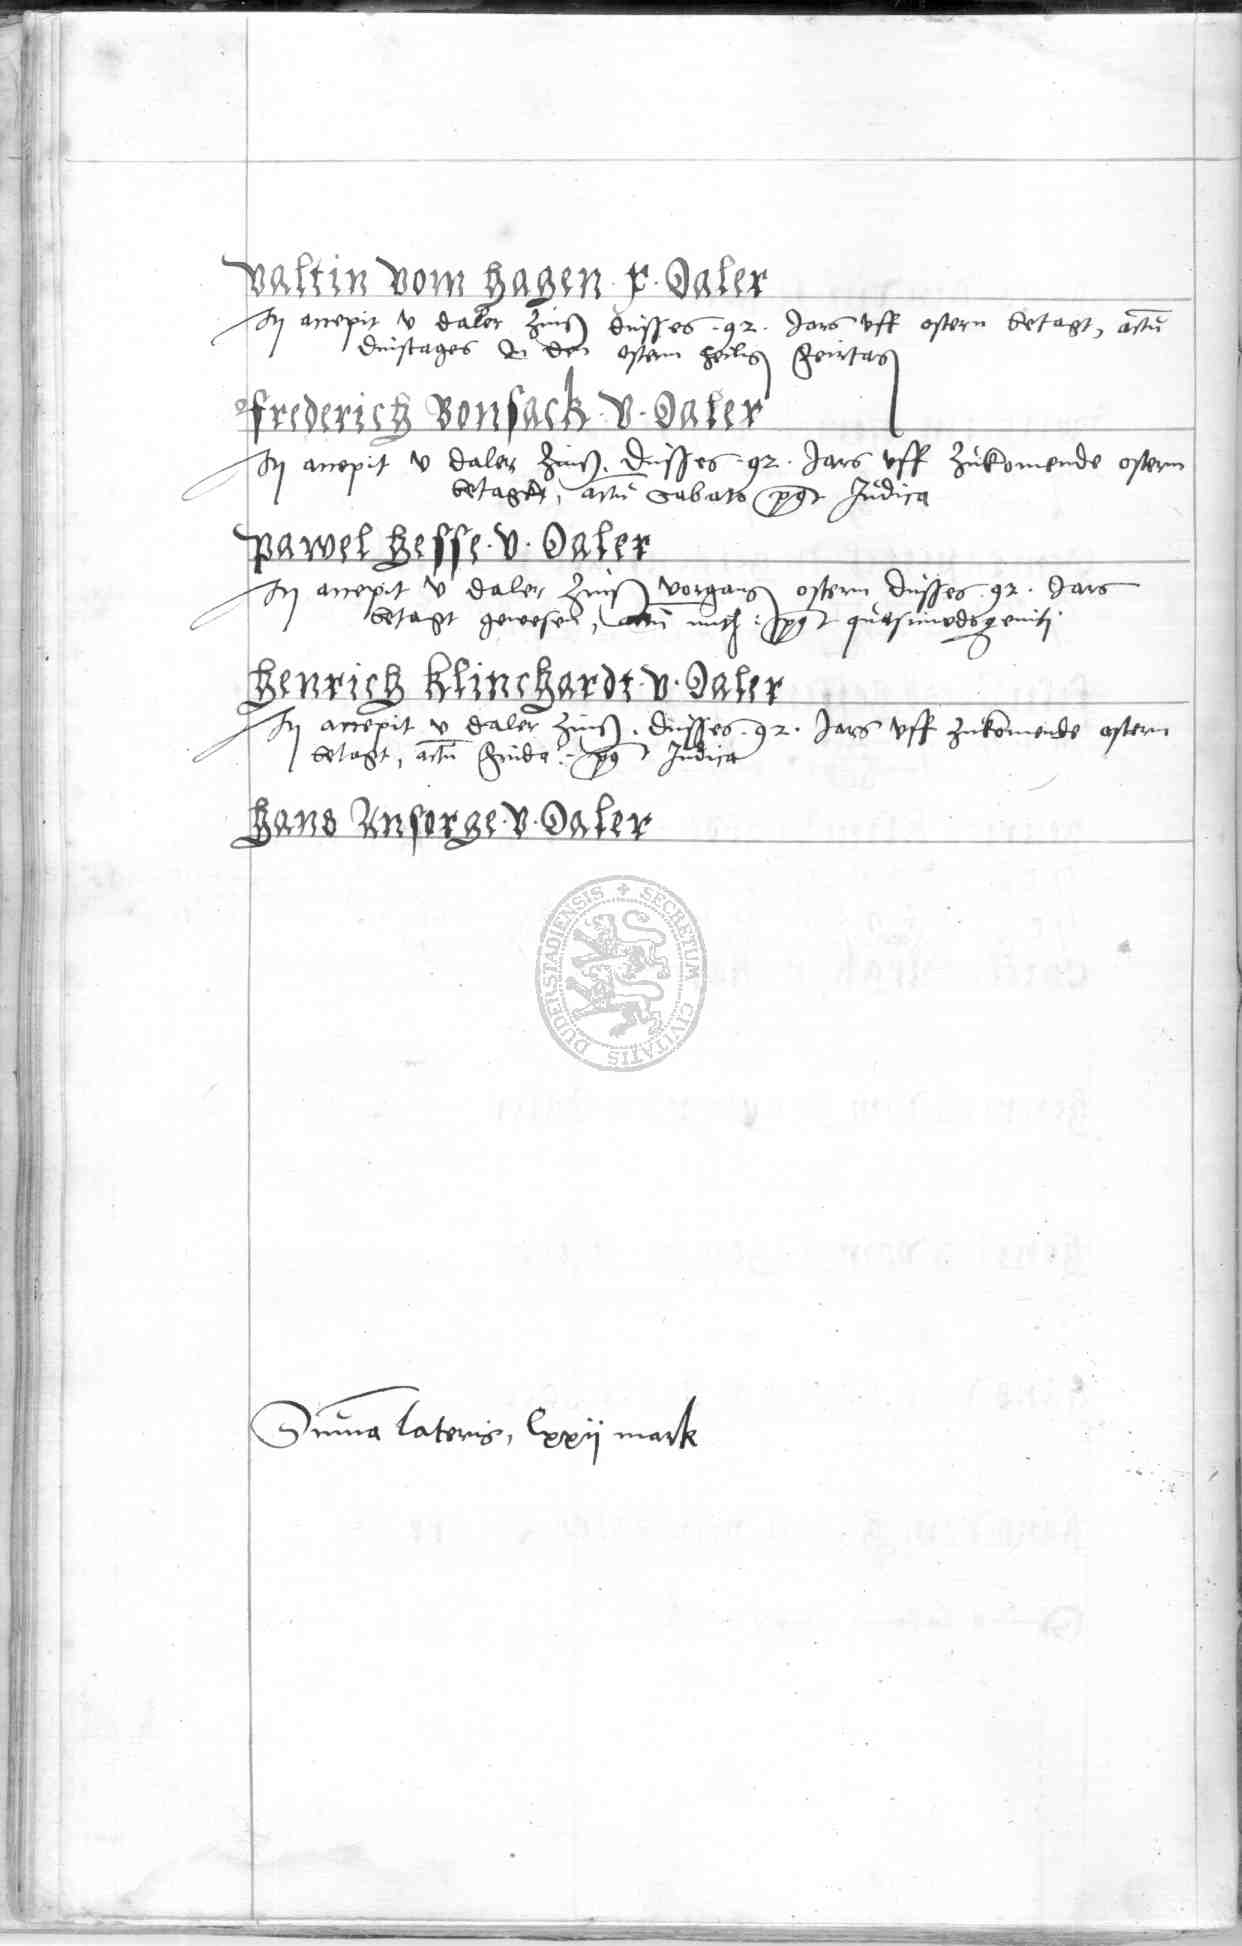 Valtin vom Hagen · x · Daler
accepit v daler Zinß disses · 92 · Jars vff ostern betagt, actū
dinstages in den ostern heilig feirtag
frederich Bonsack · v · Daler
accepit v daler Zinß · disses · 92 · Jars vff Zukomende ostern
betaget, actū Sabato post Judica
pawel Hesse · v · Daler
accepit v daler Zinß vorgang ostern disses · 92 · Jars
betagt gewesen, actū mith : post quasimodogeniti
Henrich Klinchardt · v · Daler
accepit v daler Zinß · disses · 92 · Jars vff Zukomende ostern
betagt, actū post Judica
Hans Unsorge · v · Daler
SECRETUM CIVITATIS DUDERSTADIENSIS
Suma lateris, lxxij mark